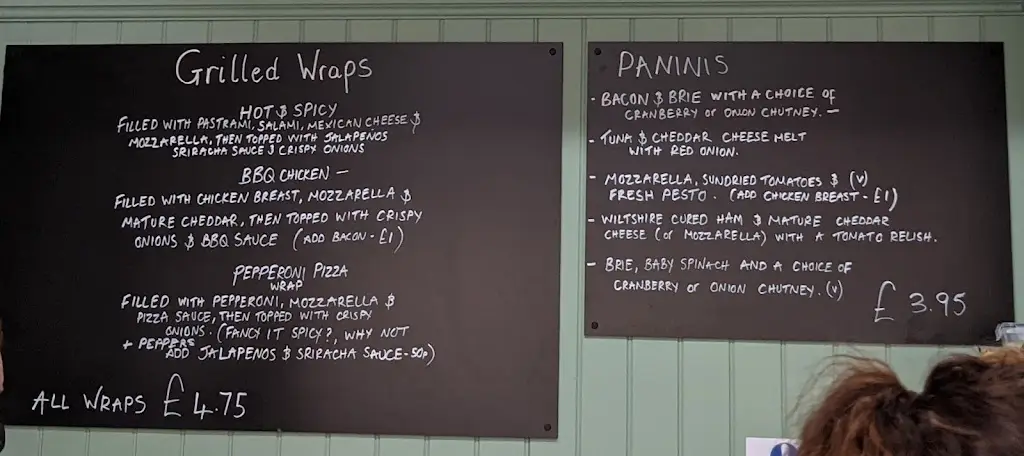 Grilled Wraps
HOT & SPICY
FILLED WITH PASTRAMI, SALAMI, MEXICAN CHEESE &
MOZZARELLA, THEN TOPPED WITH JALAPEÑOS
SRIRACHA SAUCE & CRISPY ONIONS
BBQ CHICKEN —
FILLED WITH CHICKEN BREAST, MOZZARELLA &
MATURE CHEDDAR, THEN TOPPED WITH CRISPY
ONIONS & BBQ SAUCE (ADD BACON - £1)
PEPPERONI PIZZA
WRAP
FILLED WITH PEPPERONI, MOZZARELLA &
PIZZA SAUCE, THEN TOPPED WITH CRISPY
ONIONS. (FANCY IT SPICY?, WHY NOT
+ PEPPERS
ADD JALAPENOS & SRIRACHA SAUCE - 50p)
ALL WRAPS £4.75
PANINIS
- BACON & BRIE WITH A CHOICE OF
CRANBERRY or ONION CHUTNEY. —
- TUNA & CHEDDAR CHEESE MELT
WITH RED ONION.
- MOZZARELLA, SUNDRIED TOMATOES & (V)
FRESH PESTO. (ADD CHICKEN BREAST - £1)
- WILTSHIRE CURED HAM & MATURE CHEDDAR
CHEESE (or MOZZARELLA) WITH A TOMATO RELISH.
- BRIE, BABY SPINACH AND A CHOICE OF
CRANBERRY or ONION CHUTNEY. (V)
£3.95